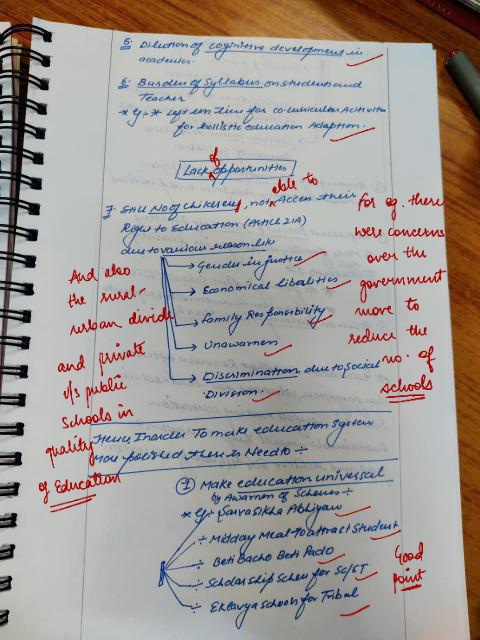 5: Dilution of cognitive development in
academics.
6: Burden of Syllabus on student and
Teacher
* eg ÷ * Left on time for co-curricular Activities
for hollistic education Adaption.
of
Lack opportunities
able to
7: Still No of children, not Access their
Right to Education (Article 21A)
due to various reason like
Gender injustice
Economical libalities
family Responsibility
Unawarnen
Discrimination due to Social
Division.
for eg. there
were concerns
over the
government
move to
reduce the
no. of
schools
And also
the rural-
urban divide
and private
v/s public
schools in
quality
of Education
Hence, In order To make education System
More polished there is Need to ÷
① Make education universal
by Awarnen of Schemes ÷
* eg ÷ Sarva Sikha Abhiyan
÷ Midday Meal to attract Student
÷ Beti Bacho Beti Pado
÷ Scholarship Schem for SC/ST
÷ Eklavya schools for Tribal
Good
point